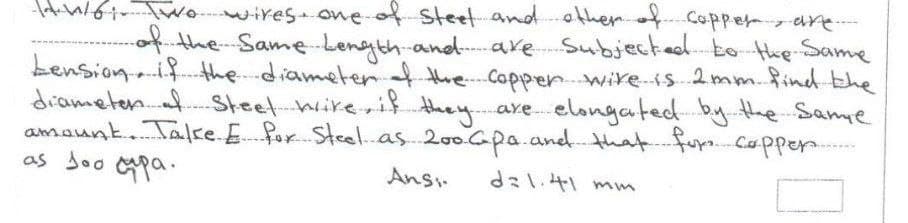 H.W6:- Two wires, one of Steel and other of Copper, are
of the Same Length and are Subjected to the Same
tension. if the diameter of the Copper wire is 2mm. find the
diameter of Steel wire, if they are elongated by the Same
amount. Take E for Steel as 200 Gpa and that for Copper
as 100 Gpa.
Ans:. d=1.41 mm